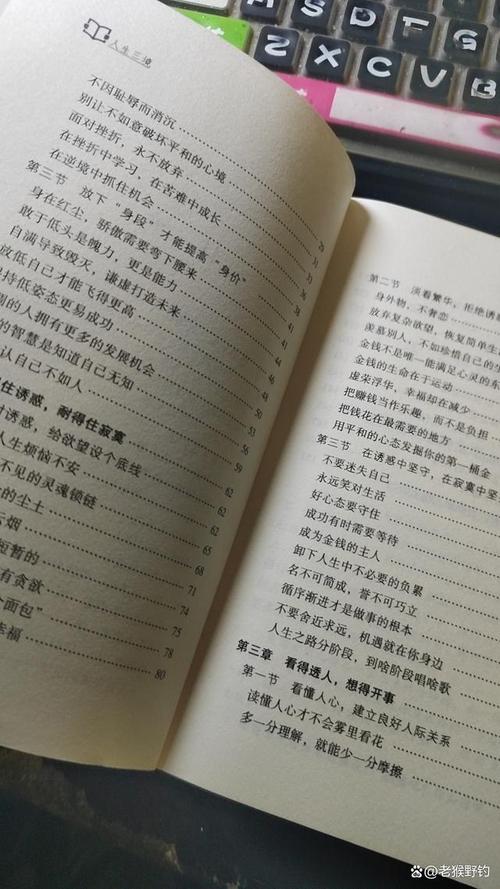 人生三境
不因耻辱而消沉
别让不如意破坏平和的心境
面对挫折，永不放弃
在挫折中学习，在苦难中成长
在逆境中抓住机会 28
第三节 放下“身段”才能提高“身价” 31
身在红尘，骄傲需要弯下腰来 33
敢于低头是魄力，更是能力 36
自满导致毁灭，谦虚打造未来 38
放低自己才能飞得更高 41
持低姿态更易成功 44
的人拥有更多的发展机会 46
的智慧是知道自己无知 48
认自己不如人 50
住诱惑，耐得住寂寞 53
诱惑，给欲望设个底线 56
人生烦恼不安 59
不见的灵魂锁链 62
的尘土 62
云烟 65
短暂的 68
有贪欲 71
个面包” 74
幸福 75
78
80
第二节 淡看繁华，拒绝诱惑
身外物，不奢恋
放弃复杂欲望，恢复简单生
羡慕别人，不如珍惜自己的生
金钱不是唯一能满足心灵的
金钱的生命在于运动
虚荣浮华，幸福却在减少
把赚钱当作乐趣，而不是负担
把钱花在最需要的地方
用平和的心态发掘你的第一桶金
第三节 在诱惑中坚守，在寂寞中坚
不要迷失自己
永远笑对生活
好心态要守住
成功有时需要等待
成为金钱的主人
卸下人生中不必要的负累
名不可简成，誉不可巧立
循序渐进才是做事的根本
不要舍近求远，机遇就在你身边
人生之路分阶段，到啥阶段唱啥歌
第三章 看得透人，想得开事
第一节 看懂人心，建立良好人际关系
读懂人心才不会雾里看花
多一分理解，就能少一分摩擦
S D F G H
Z X C V B
@老猴野钓